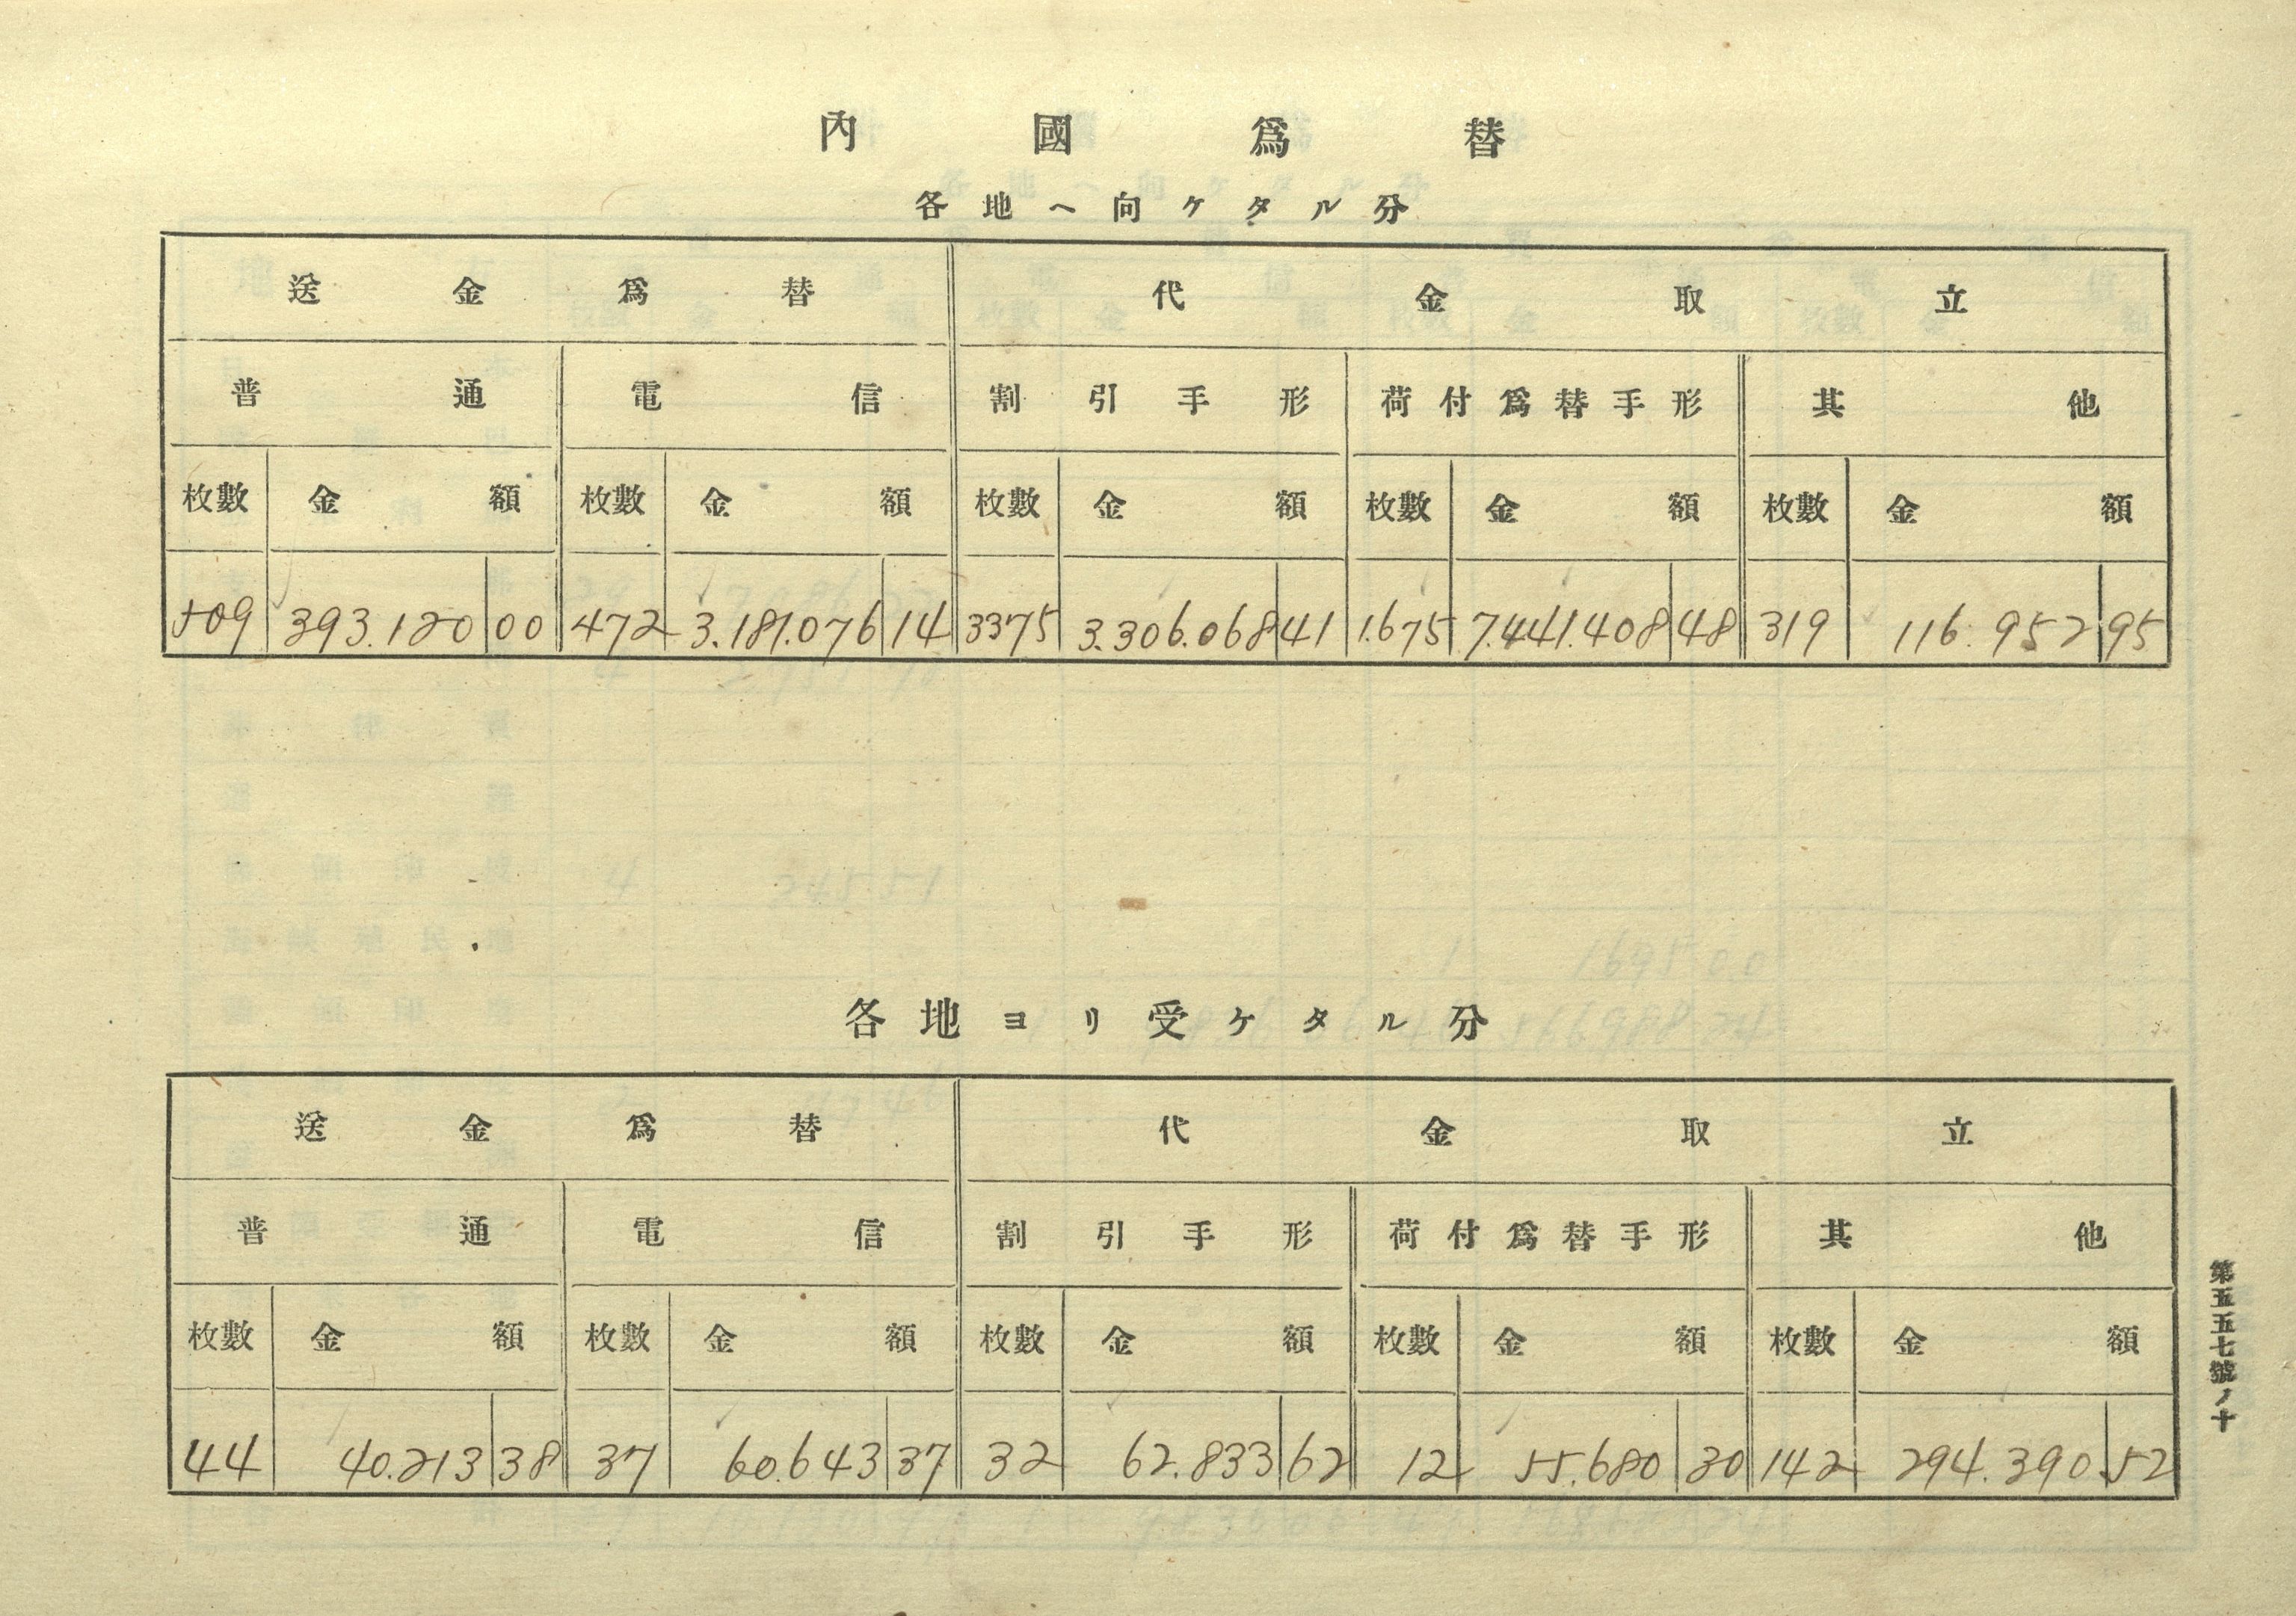 內國爲替
各地ヘ向ケタル分
送金爲替 代金取立
普通 電信 割引手形 荷付爲替手形 其他
枚數 金額 枚數 金額 枚數 金額 枚數 金額 枚數 金額
509 393.120 00 472 3.181.076 14 3375 3.306.068 41 1.675 7.441.408 48 319 116.952 95
各地ヨリ受ケタル分
送金爲替 代金取立
普通 電信 割引手形 荷付爲替手形 其他
枚數 金額 枚數 金額 枚數 金額 枚數 金額 枚數 金額
44 40.213 38 37 60.643 37 32 62.833 62 12 55.680 30 142 294.390 52
第五五七號ノ十